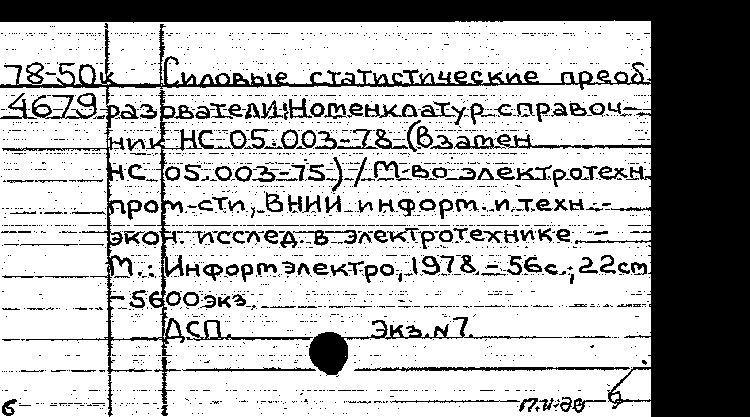 78-50к Силовые статистические преоб
4679 разователи: Номенклатур справоч-
ник НС 05.003-78 (Взамен
НС 05.003-75) / М-во электротехн.
пром-сти, ВНИИ информ. и техн.-
экон. исслед. в электротехнике. -
М.: Информэлектро, 1978 - 56с.; 22cm
-5600экз.
ДСП. Экз. N 7.
б